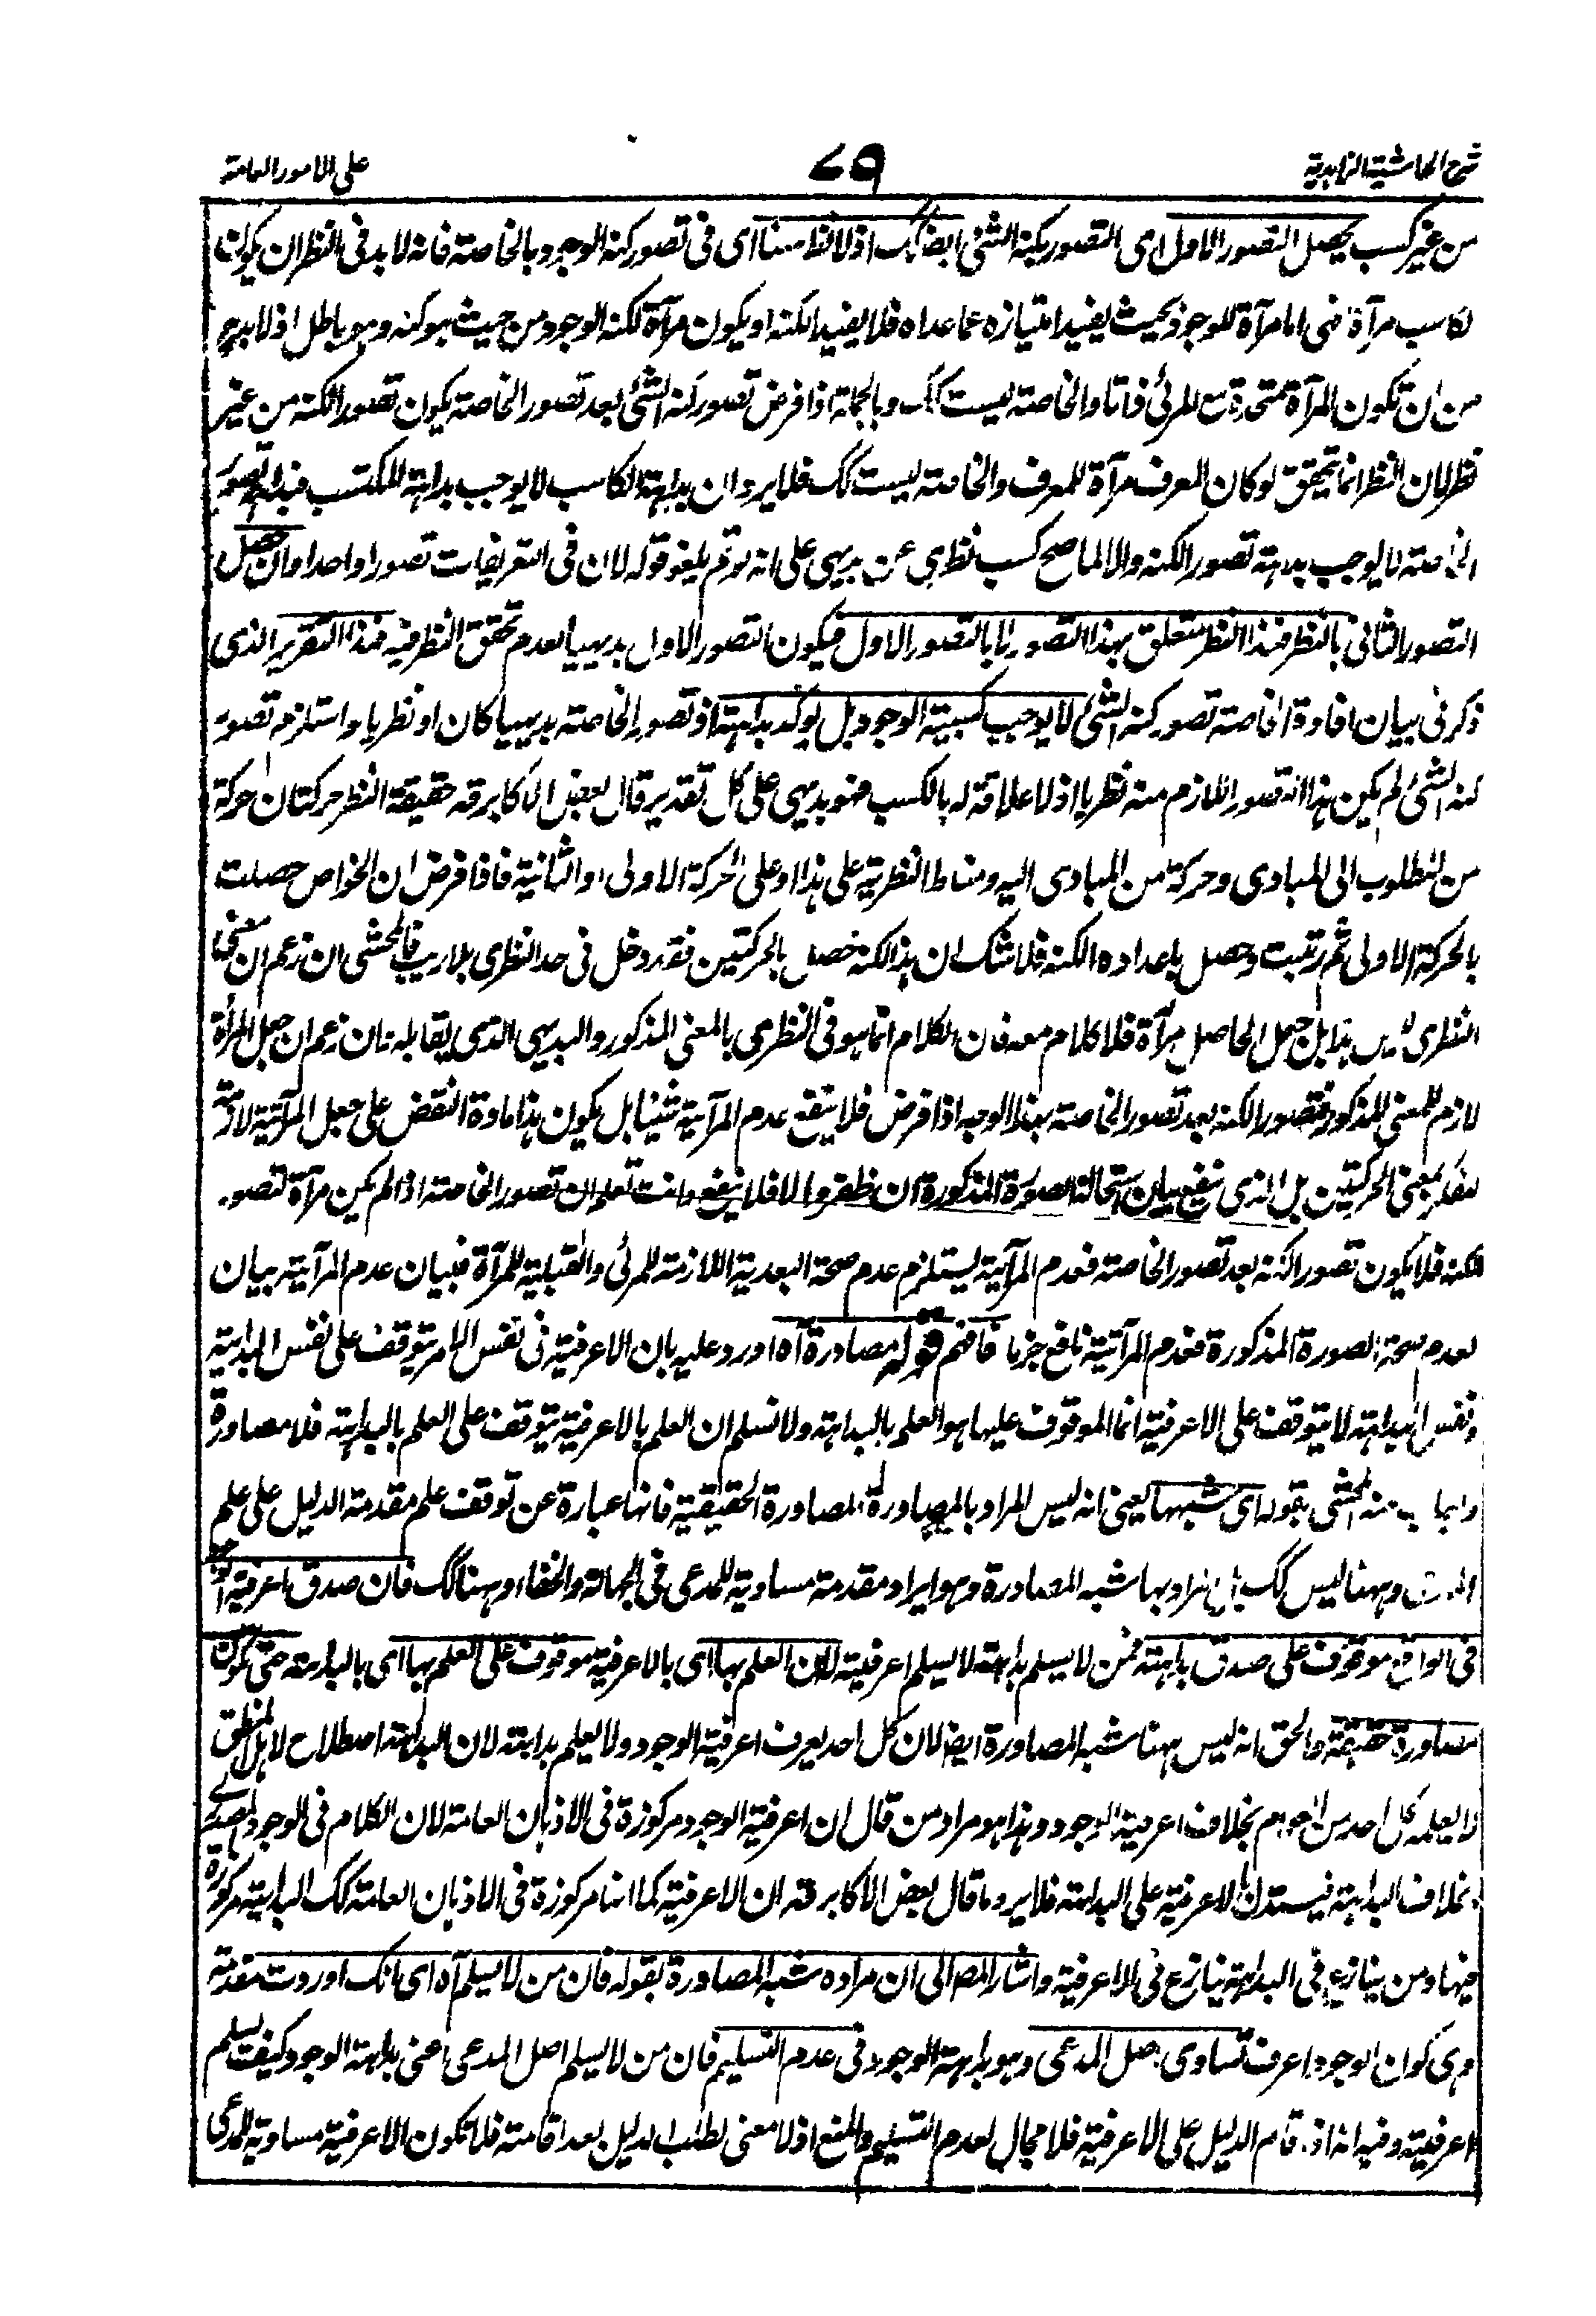 شرح الحاشية الزاهدية
٧٩
على الامور العامة
من غير كسب يحصل التصور الاول اى التصور بكنه الشئ ايضا كك اذ لا نظر هنا اى فى تصور كنه الوجود بالخاصة فانه لا بد فى النظر ان يكون
الكاسب مرآة فهى اما مرآة للوجود بحيث يفيد امتيازه عما عداه فلا يفيد الكنه او يكون مرآة لكنه الوجود من حيث هو كنه وهو باطل اذ لا بد ح
من ان تكون المرآة متحدة مع المرئى ذاتا والخاصة ليست كك وبالجملة اذا فرض تصور كنه الشئ بعد تصور الخاصة يكون تصور الكنه من غير
نظر لان النظر انما يتحقق لو كان المعرف مرآة للمعرف والخاصة ليست كك فلا يرد ان بداهة الكاسب لا يوجب بداهة المكتسب فبداهة تصور
الخاصة لا يوجب بداهة تصور الكنه والا لما صح كسب نظرى عن بديهى على انه لو تم يلغو قوله لان فى التعريفات تصورا واحدا وان حصل
التصور الثانى بالنظر فهذا النظر متعلق بهذا التصور لا بالتصور الاول فيكون التصور الاول بديهيا لعدم تحقق النظر فيه فهذا التقرير الذى
ذكر فى بيان افادة الخاصة تصور كنه الشئ لا يوجب كسبية الوجود بل يوكد بداهته اذ تصور الخاصة بديهيا كان او نظريا واستلزم تصور
كنه الشئ لم يكن هذا التصور اللازم منه نظريا اذ لا علاقة له بالكسب فهو بديهى على كل تقدير قال بعض الاكابر قه حقيقة النظر حركتان حركة
من المطلوب الى المبادى وحركة من المبادى اليه ومناط النظرية على هذا او على الحركة الاولى او الثانية فاذا فرض ان الخواص حصلت
بالحركة الاولى ثم رتبت وحصل باعداده الكنه فلا شك ان هذا الكنه حصل بالحركتين فقد دخل فى حد النظرى بلا ريب فالمحشى ان زعم ان معنى
النظرى ليس هذا بل جعل الحاصل مرآة فلا كلام معه فان الكلام انما هو فى النظرى بالمعنى المذكور والبديهى الذى يقابله وان زعم ان جعل المرآة
لازم للمعنى المذكور فتصور الكنه بعد تصور الخاصة بهذا الوجه اذا فرض فلا ينفع عدم المرآتية شيئا بل يكون هذا مادة النقض على جعل المرآتية لازمة
للنظر بمعنى الحركتين بل الذى ينفع بيان استحالة الصورة المذكورة ان ظفروا والا فلا ينفع وانت تعلم ان تصور الخاصة اذا لم يكن مرآة لتصور
الكنه فلا يكون تصور الكنه بعد تصور الخاصة فعدم المرآتية يستلزم عدم صحة البعدية اللازمة للمرئى والقبلية للمرآة فبيان عدم المرآتية بيان
لعدم صحة الصورة المذكورة فعدم المرآتية نافع جزما فافهم قوله مصادرة آه اورد عليه بان الاعرفية فى نفس الامر يتوقف على نفس البداهة
ونفس البداهة لا يتوقف على الاعرفية انما الموقوف عليها هو العلم بالبداهة ولا نسلم ان العلم بالاعرفية يتوقف على العلم بالبداهة فلا مصادرة
واجاب عنه المحشى بقوله اى شبهها يعنى انه ليس المراد بالمصادرة المصادرة الحقيقية فانها عبارة عن توقف علم مقدمة الدليل على علم
المدعى وههنا ليس كك بل المراد بها شبه المصادرة وهو ايراد مقدمة مساوية للمدعى فى الجهالة والخفاء وههنا كك فان صدق اعرفية الوجود
فى الواقع موقوف على صدق بداهته فمن لا يسلم بداهته لا يسلم اعرفيته لا ان العلم بها اى بالاعرفية موقوف على العلم بها اى بالبداهة حتى تكون
مصادرة حقيقة والحق انه ليس ههنا شبه المصادرة ايضا لان كل احد يعرف اعرفية الوجود ولا يعلم بداهته لان البداهة اصطلاح لاهل المنطق
لا يعلمه كل احد من العوام بخلاف اعرفية الوجود وهذا هو مراد من قال ان اعرفية الوجود مركوزة فى الاذهان العامة لان الكلام فى الوجود المصدرى
بخلاف البداهة فيستدل بالاعرفية على البداهة فلا يرد ما قال بعض الاكابر قه ان الاعرفية كما انها مركوزة فى الاذهان العامة كك البداهة مركوزة
فيها ومن ينازع فى البداهة ينازع فى الاعرفية واشار المص الى ان مراده شبه المصادرة بقوله فان من لا يسلم آه اى بانك اوردت مقدمة
وهى كون الوجود اعرف تساوى اصل المدعى وهو بداهة الوجود فى عدم التسليم فان من لا يسلم اصل المدعى اعنى بداهة الوجود كيف يسلم
اعرفيته وفيه انه اذا قام الدليل على الاعرفية فلا مجال لعدم التسليم والمنع اذ لا معنى لطلب الدليل بعد اقامته فلا تكون الاعرفية مساوية للمدعى